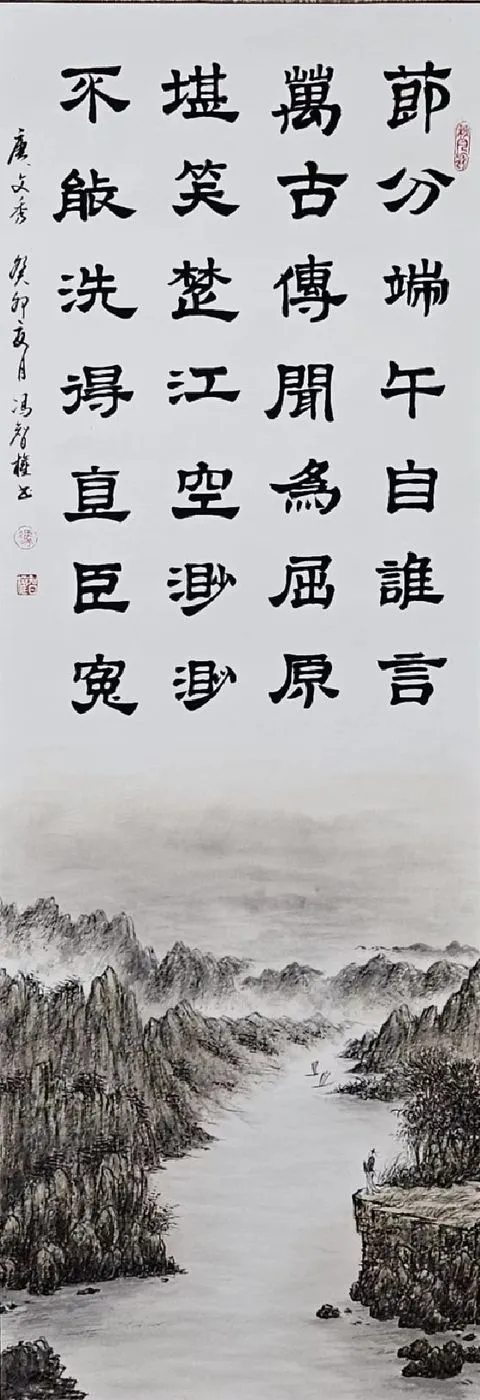 節分端午自誰言
萬古傳聞為屈原
堪笑楚江空渺渺
不能洗得直臣寃
唐文秀 癸卯夏月馮智權书